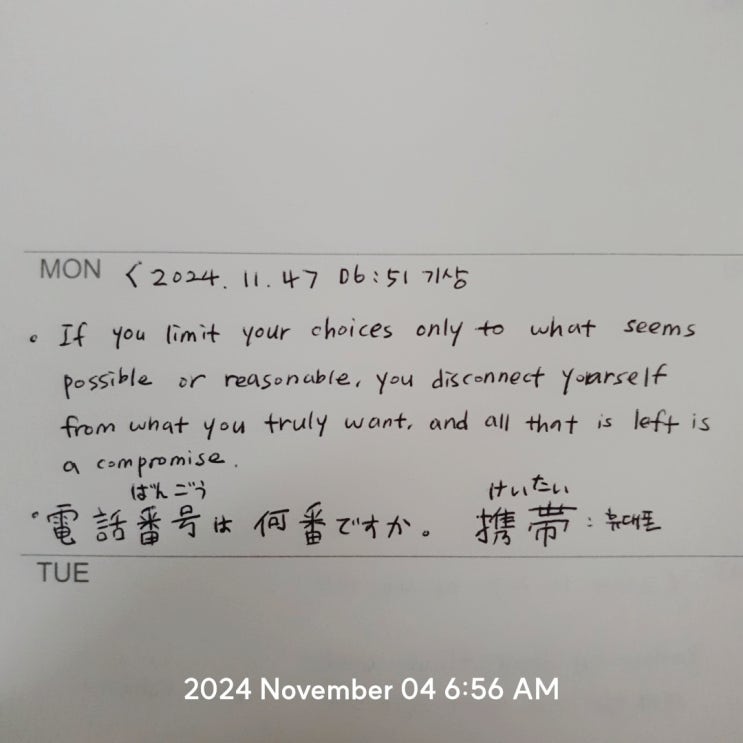 MON <2024. 11. 4> 06:51 기상
• If you limit your choices only to what seems
possible or reasonable, you disconnect yourself
from what you truly want, and all that is left is
a compromise.
ばんごう けいたい
• 電話番号は 何番ですか。 携帯 : 휴대폰
TUE
2024 November 04 6:56 AM